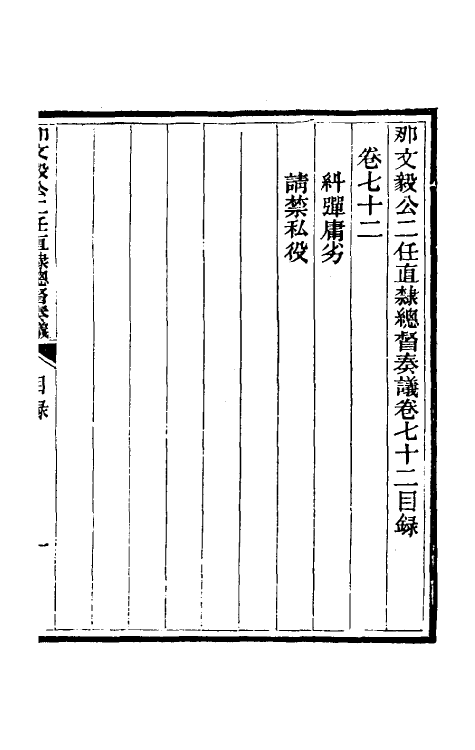 那文毅公二任直隸總督奏議卷七十二目録
卷七十二
糾彈庸劣
請禁私役
那文毅公二任直隸總督奏議
目録
一